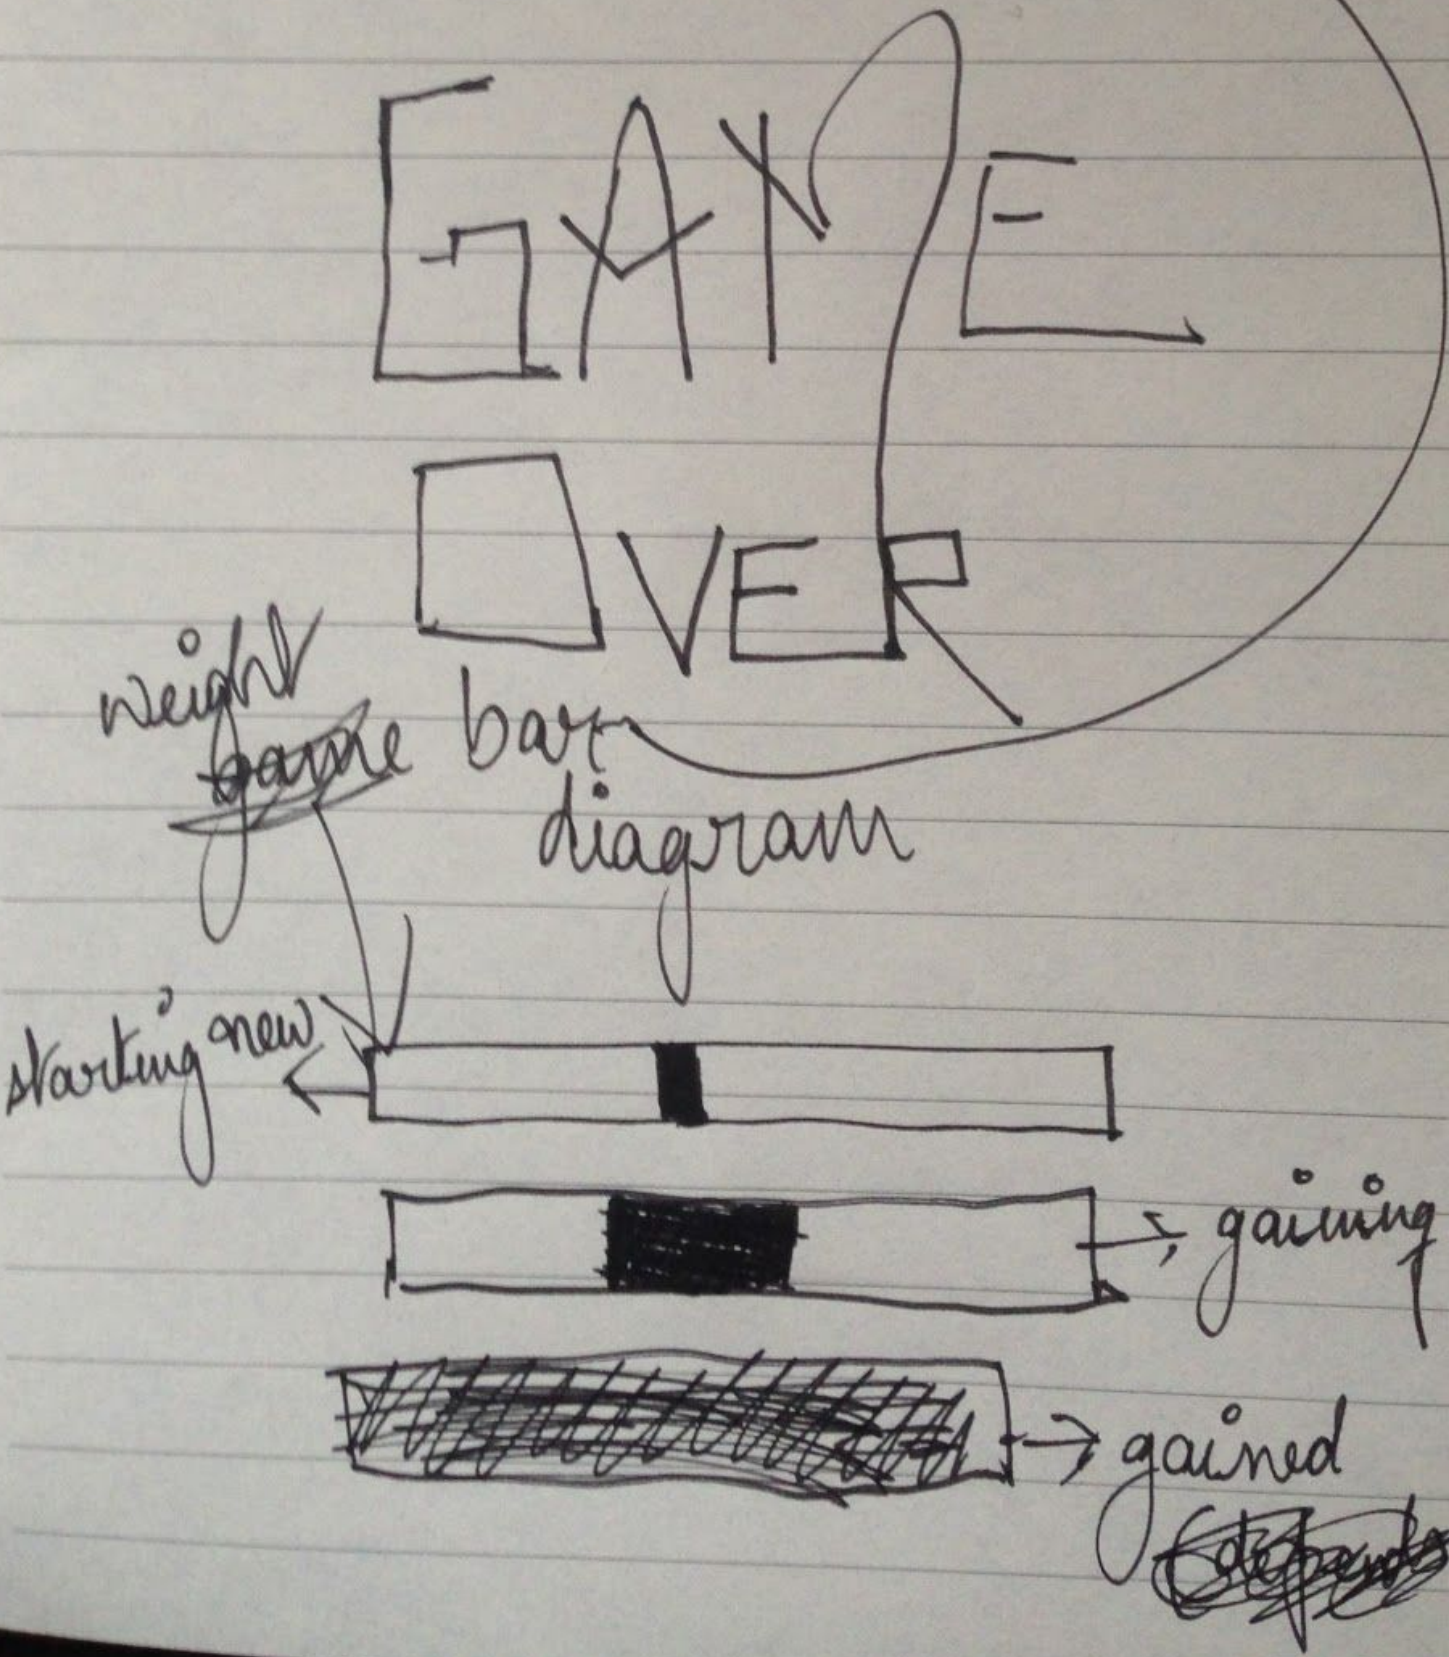 GAME
OVER
weight
game bar
diagram
starting new
gaining
gained